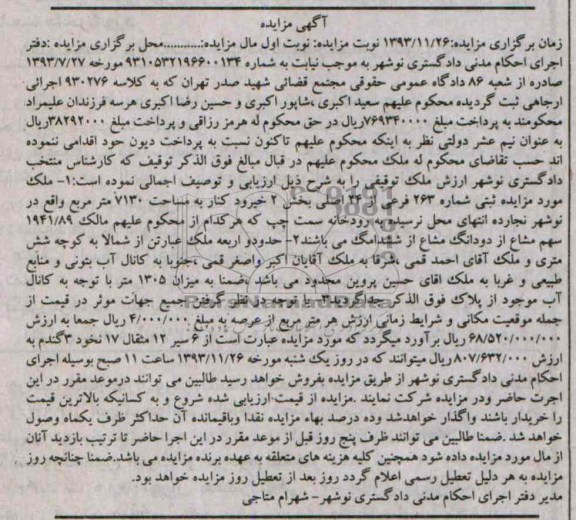 آگهی مزایده
زمان برگزاری مزایده:۱۳۹۳/۱۱/۲۶ نوبت مزایده: نوبت اول مال مزایده:...........محل برگزاری مزایده :دفتر
اجرای احکام مدنی دادگستری نوشهر به موجب نیابت به شماره ۹۳۱۰۵۳۲۱۹۶۶۰۰۱۳۴ مورخه ۱۳۹۳/۷/۲۷
صادره از شعبه ۸۶ دادگاه عمومی حقوقی مجتمع قضائی شهید صدر تهران که به کلاسه ۹۳۰۲۷۶ اجرائی
ارجاهی ثبت گردیده محکوم علیهم سعید اکبری ،شاپور اکبری و حسین رضا اکبری هرسه فرزندان علیمراد
محکومند به پرداخت مبلغ ۷۶۹۳۴۰۰۰۰ریال در حق محکوم له هرمز رزاقی و پرداخت مبلغ ۳۸۲۹۲۰۰۰ریال
به عنوان نیم عشر دولتی نظر به اینکه محکوم علیهم تاکنون نسبت به پرداخت دیون حود اقدامی ننموده
اند حسب تقاضای محکوم له ملک محکوم علیهم در قبال مبالغ فوق الذکر توقیف که کارشناس منتخب
دادگستری نوشهر ارزش ملک توقیفی را به شرح ذیل ارزیابی و توصیف اجمالی نموده است:۱- ملک
مورد مزایده ثبتی شماره ۲۶۳ فرعی از ۲۴ اصلی بخش ۲ خیرود کنار به مساحت ۷۱۳۰ متر مربع واقع در
نوشهر نجارده انتهای محل نرسیده به رودخانه سمت چپ که هرکدام از محکوم علیهم مالک ۱۹۴۱/۸۹
سهم مشاع از دودانگ مشاع از ششدانگ می باشند۲- حدودو اربعه ملک عبارتن از شمالا به کوچه شش
متری و ملک آقای احمد قمی ،شرقا به ملک آقایان اکبر واصغر قمی ،جنوبا به کانال آب بتونی و منابع
طبیعی و غربا به ملک اقای حسین پروین محدود می باشد ،ضمنا به میزان ۱۳۰۵ متر با توجه به کانال
آب موجود از پلاک فوق الذکر جداگردید۳- با توجه در نظر گرفتن جمیع جهات موثر در قیمت از
جمله موقعیت مکانی و شرایط زمانی ارزش هر متر مربع از عرصه به مبلغ ۴/۰۰۰/۰۰۰ ریال جمعا به ارزش
۶۸/۵۲۰/۰۰۰/۰۰۰ ریال برآورد میگردد که مورد مزایده عبارت است از ۶ سیر ۱۲ مثقال ۱۷ نخود ۳گندم به
ارزش ۸۰۷/۶۳۲/۰۰۰ ریال میتوانند که در روز یک شنبه مورخه ۱۳۹۳/۱۱/۲۶ ساعت ۱۱ صبح بوسیله اجرای
احکام مدنی دادگستری نوشهر از طریق مزایده بفروش خواهد رسید طالبین می توانند درموعد مقرر در این
اجرت حاضر ودر مزایده شرکت نمایند .مزایده از قیمت ارزیابی شده شروع و به کسانیکه بالاترین قیمت
را خریدار باشند واگذار خواهدشد وده درصد بهاء مزایده نقدا وباقیمانده آن حداکثر ظرف یکماه وصول
خواهد شد .ضمنا طالبین می توانند ظرف پنج روز قبل از موعد مقرر در این اجرا حاضر تا ترتیب بازدید آنان
از مال مورد مزایده داده شود همچنین کلیه هزینه های متعلقه به عهده برنده مزایده می باشد.ضمنا چنانچه روز
مزایده به هر دلیل تعطیل رسمی اعلام گردد روز بعد از تعطیل روز مزایده خواهد بود.
مدیر دفتر اجرای احکام مدنی دادگستری نوشهر- شهرام متاجی